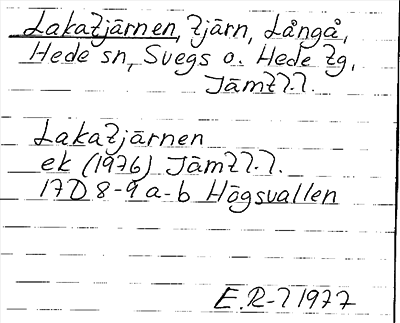 Lakatjärnen, tjärn, Långå,
Hede sn, Svegs o. Hede tg,
Jämtl.l.
Lakatjärnen
ek (1976) Jämtl.l.
17D 8-9 a-b Högvallen
E.R-l 1977